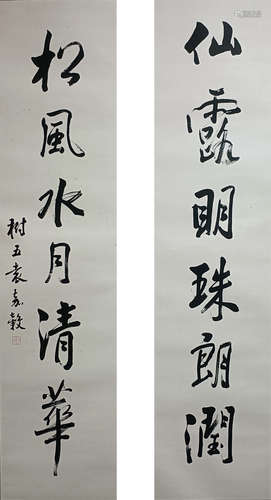 仙露明珠朗潤
松風水月清華
樹五袁嘉穀